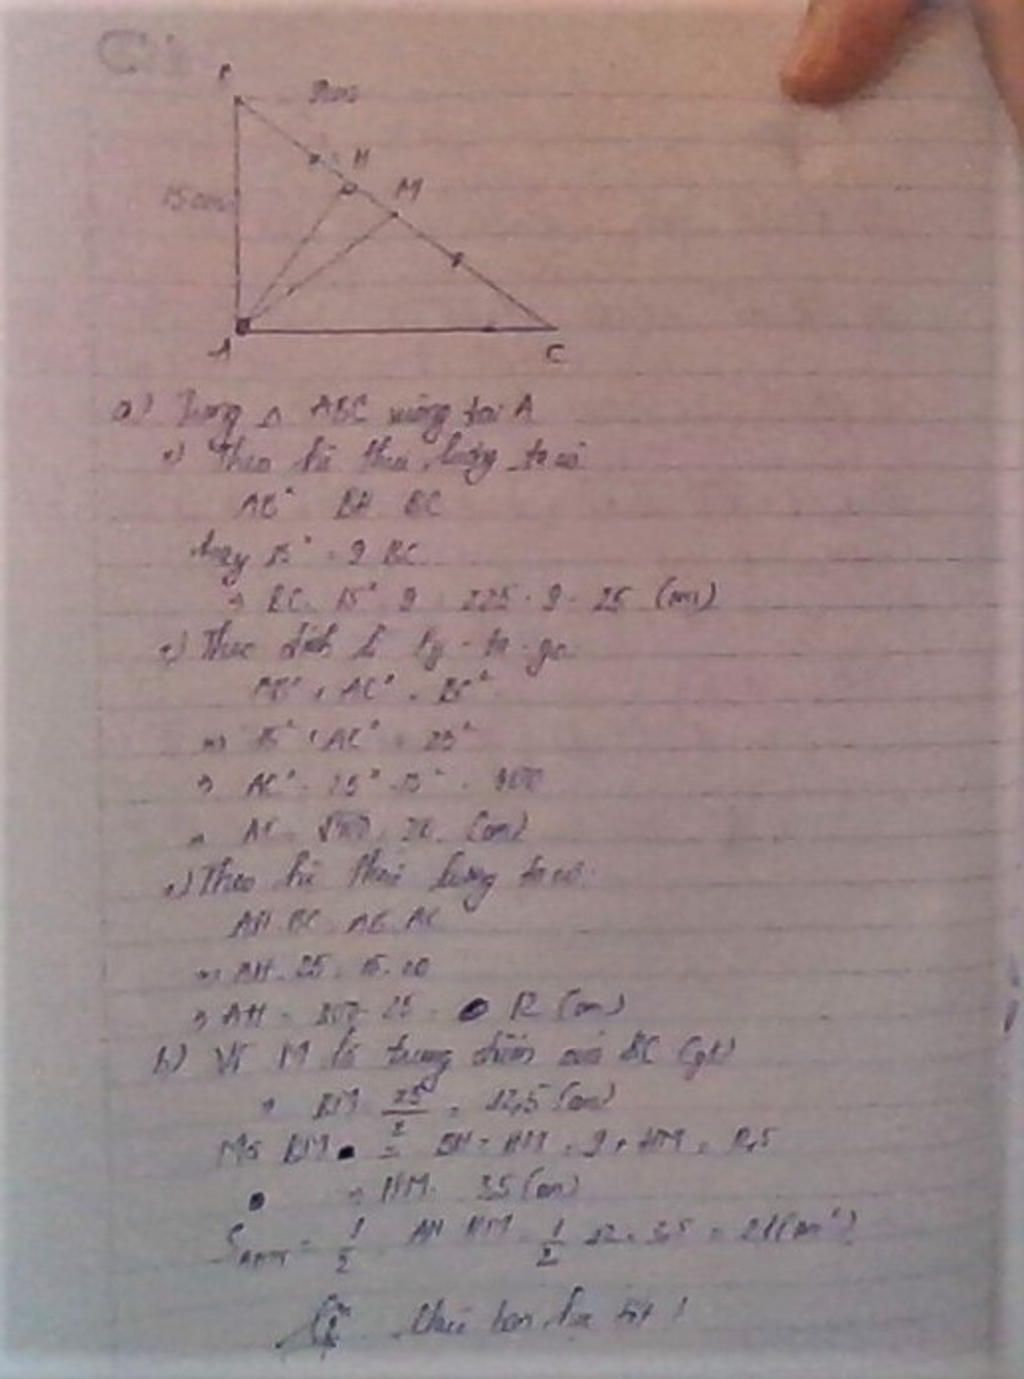 9cm
H
M
15cm
A
C
a) Trong △ ABC vuông tại A
+) Theo hệ thức lượng ta có
AB² = BH . BC
hay 15² = 9 BC
⇒ BC = 15² : 9 = 225 : 9 = 25 (cm)
+) Theo định lí Py - ta - go
AB² + AC² = BC²
⇒ 15² + AC² = 25²
⇒ AC² = 25² - 15² = 400
⇒ AC = √400 = 20 (cm)
+) Theo hệ thức lượng ta có:
AH . BC = AB . AC
⇒ AH . 25 = 15 . 20
⇒ AH = 300 : 25 = 12 (cm)
b) Vì M là trung điểm của BC (gt)
⇒ BM = 25/2 = 12,5 (cm)
Mà BM = BH + HM = 9 + HM = 12,5
⇒ HM = 3,5 (cm)
S AHM = 1/2 . AH . HM = 1/2 . 12 . 3,5 = 21 (cm²)
chúc bạn học tốt !